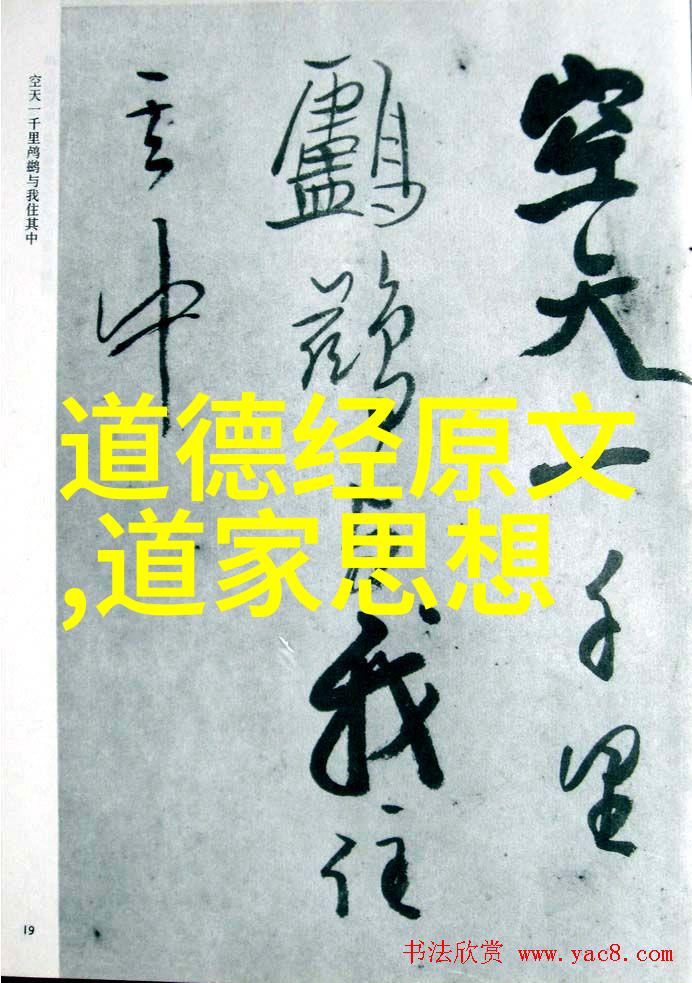 空天一千里
鸕鷀与我住
其中
空天一千里鸬鹚与我住其中
道德经原文
,道家思想
19
书法欣赏 www.yac8.com